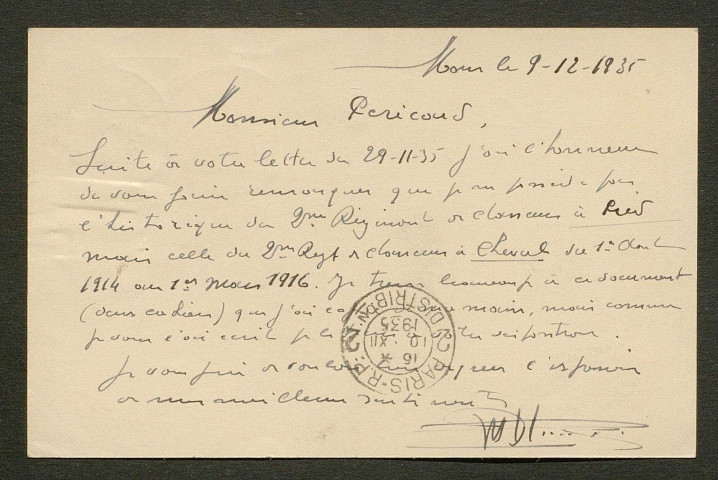 Mons le 9-12-1935
Monsieur Pericoud,
Suite à votre lettre du 29-11-35 j'ai l'honneur
de vous faire remarquer que je ne possède pas
l'historique du 2me Régiment de chasseurs à Pied
mais celle du 2me Regt de chasseurs à Cheval du 1er Août
1914 au 1er Mars 1916. Je tiens beaucoup à ce document
(deux cahiers) que j'ai main, mais comme
je vous l'ai écrit je disposition.
Je vous prie de l'expression
de mes meilleurs sentiments
PARIS-R.P.
DISTRIBON
16
10 XII
1935